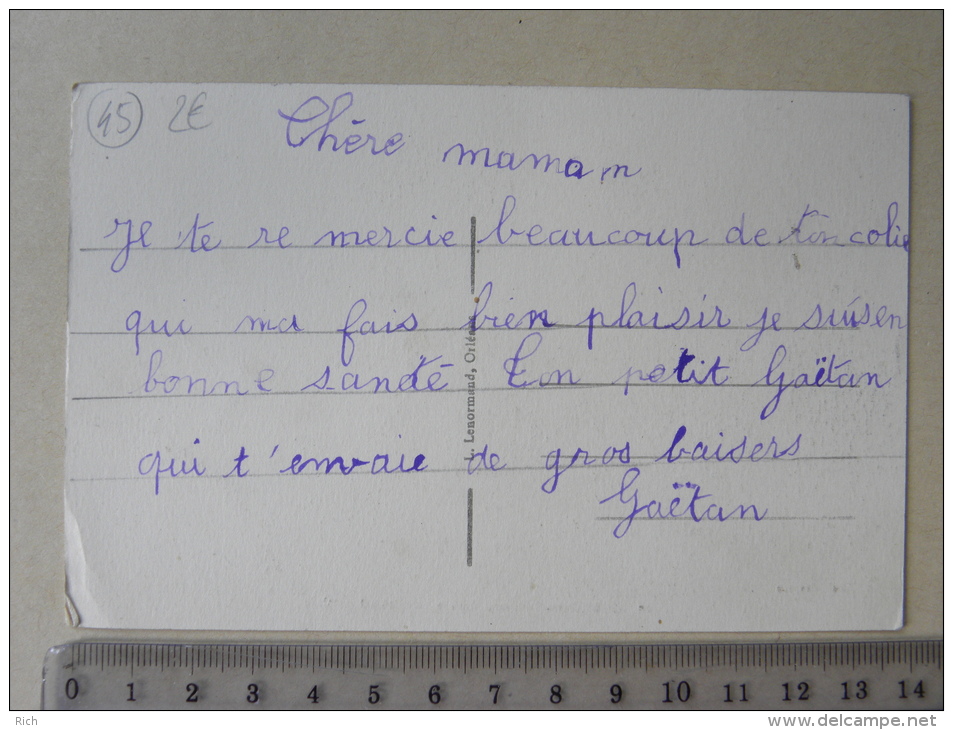 45 2€
Chère maman
Je te re mercie beaucoup de ton colie
qui ma fais bien plaisir je suis en
bonne santé Ton petit Gaëtan
qui t'envaie de gros baisers
Gaëtan
L. Lenormand, Orléans
0 1 2 3 4 5 6 7 8 9 10 11 12 13 14
Rich
www.delcampe.net